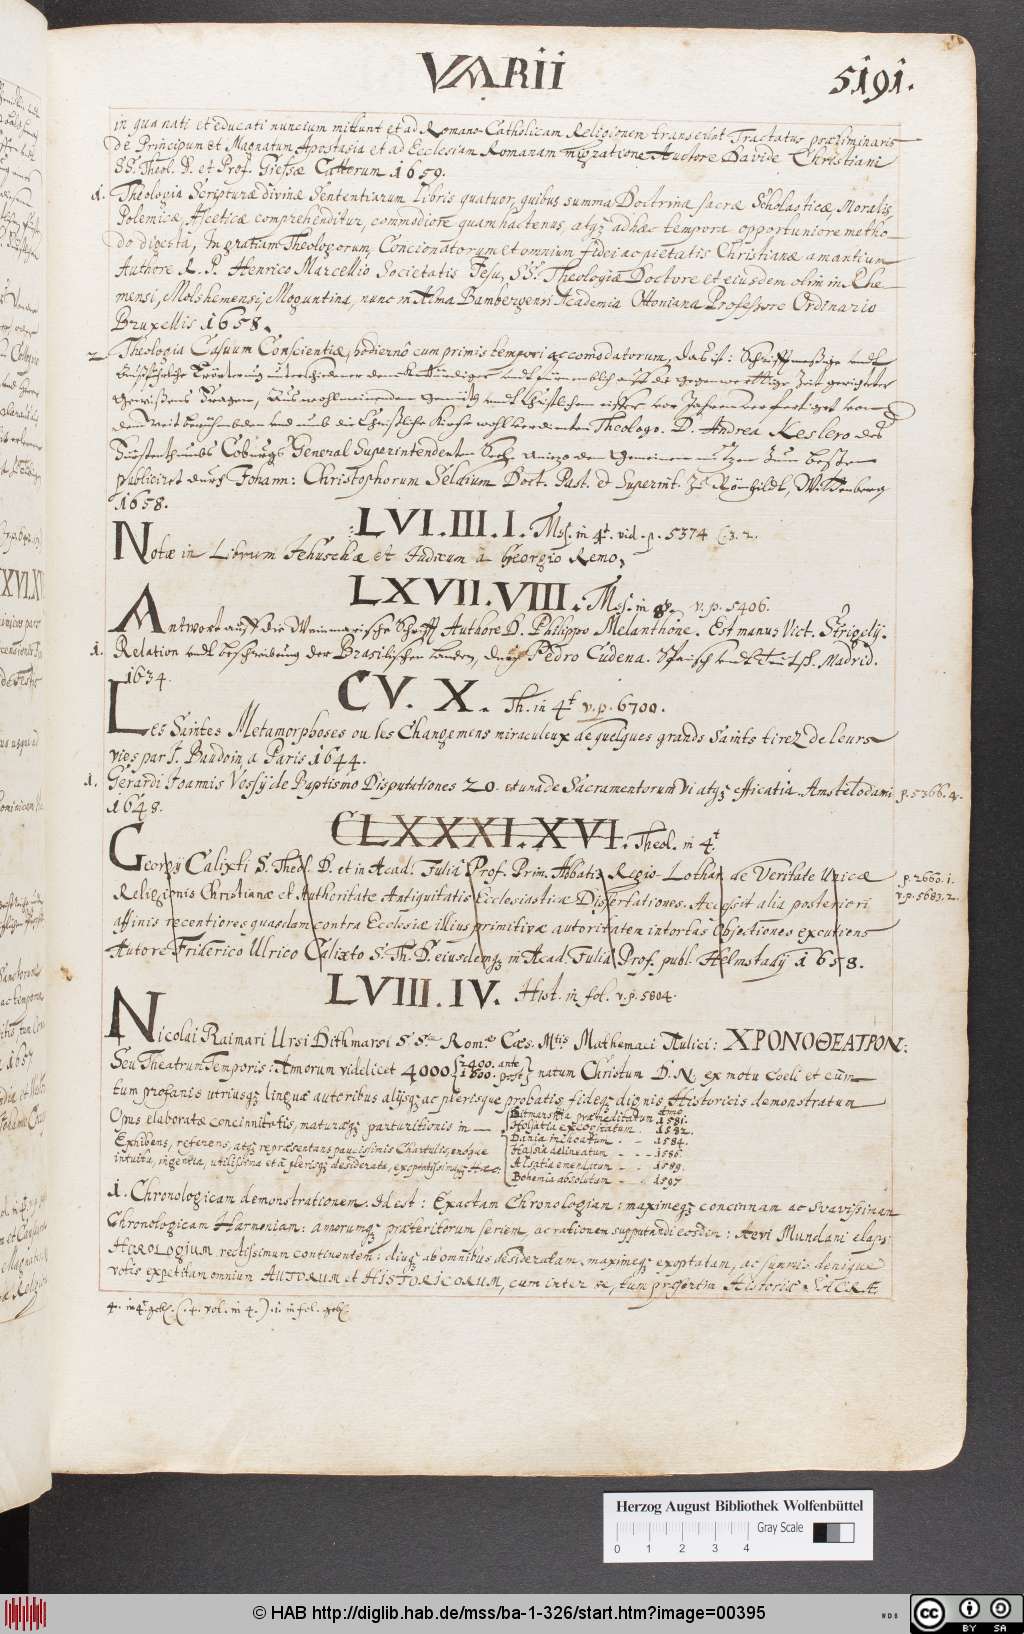 VARII
5191.
in qua nati et educati nuncium mittunt et ad Romano-Catholicam Religionem transeunt Tractatus præliminaris
de Principum et Magnatum Apostasia et ad Ecclesiam Romanam migratione Auctore Davide Christiani
SS. Theol. D. et Prof. Giessæ Cattorum 1659.
1. Theologia Scripturæ divinæ Sententiarum Libris quatuor, quibus summa Doctrina sacræ Scholasticæ, Moralis,
Polemicæ, Asceticæ comprehenditur, commodiore quam hactenus, atq; ad hæc tempora opportuniore metho-
do digesta, In gratiam Theologorum, Concionatorum et omnium fidei ac pietatis Christianæ amantium
Authore R. P. Henrico Marcellio Societatis Jesu, SS. Theologiæ Doctore et eiusdem olim in Rhe-
mensi, Molshemensi, Moguntina, nunc in Alma Bambergensi Academia Ottoniana Professore Ordinario
Bruxellis 1658.
2. Theologia Casuum Conscientiæ, hodierno cum primis tempori accomodatorum, das ist: Schrifftmessige undt
außführliche Erörterung unterschiedener
gewißens Fragen,
Theologo. D. Andrea Keslero des
Fürstenthumbs Coburgs General Superintendenten
publiciret durch Johann: Christophorum Seldium Doct. Past. et Superint. zu Römhildt, Wittenberg
1658.
LVI. III. I. Mss. in 4t. vid. p. 5374 C. 3. 2.
Notæ in Librum Jehuschæ et Judicum a Georgio Remo,
LXVII. VIII. Mss. in 8v. v. p. 5406.
Antwort auff die Weinmarische Schrifft Authore D. Philippo Melanthone. Est manus Vict. Strigelij.
1. Relation undt beschreibung der Brasilischen Landen, durch Pedro Cudena. Spanisch undt Teutsch. Madrid.
1634.
CV. X. Th. in 4t v. p. 6700.
Les Saintes Metamorphoses ou les Changemens miraculeux de quelques grands Saints tirez de leurs
vies par J. Baudoin, a Paris 1644.
1. Gerardi Joannis Vossij de Baptismo Disputationes 20. et una de Sacramentorum Vi atq; efficatia Amstelodami p. 5366. 4.
1648.
CLXXXI. XVI. Theol. in 4t
Georgij Calixti S. Theol. D. et in Acad. Julia Prof. Prim. Abbatis Regio-Lothar. de Veritate Unicæ p. 2660. 1.
Religionis Christianæ et Authoritate Antiquitatis Ecclesiasticæ Dissertationes. Accessit alia posteriori v. p. 5683. 2.
affinis recentiores quasdam contra Ecclesiæ illius primitivæ autoritatem intortas Objectiones excutiens
Autore Friderico Ulrico Calixto S. Th. D. eiusdemq; in Acad. Julia Prof. publ. Helmstadij 1658.
LVIII. IV. Hist. in fol. v. p. 5804.
Nicolai Raimari Ursi Dithmarsi S. Sæ. Romæ. Cæs. Mtis Mathematici Aulici: ΧΡΟΝΟΘΕΑΤΡΟΝ:
Seu Theatrum Temporis: Annorum videlicet 4000. {2400. ante 1600. post} natum Christum D. N. ex motu coeli et cum
tum profanis utriusq; linguæ autoribus alijsq; ac plerisque probatis fideq; dignis Historicis demonstratum
Opus elaboratæ concinnitatis, maturæq; parturitionis in
Ditmarsia præmeditatum Anno 1581.
Holsatia excogitatum 1582.
Dania inchoatum - - 1584.
Hassia delineatum - - 1586.
Alsatia emendatum - - 1589.
Bohemia absolutum - - 1597
Exhibens, referens, atq; repræsentans paucissimis Chartulis, eosque
intuitu, ingentia, utilissima et a plerisq; desiderata, exoptatissimaq; Hæc.
1. Chronologicam demonstrationem. Id est: Exactam Chronologiam: maximeq; concinnam ac suavissimam
Chronologicam Harmoniam: annorumq; præteritorum seriem, ac rationem supputandi eosdem: Aevi Mundani elapsi
HOROLOGIUM rectissimum continentem: diuq; ab omnibus desideratam, maximeq; exoptatam, ac summis denique
votis expetitam omnium AUTORUM et HISTORICORUM, cum inter se, tum præsertim Historiæ SACRÆ.
4. in 4t. geh. (. 4. vol. in 4. ). 1. in fol. geh.
Herzog August Bibliothek Wolfenbüttel
Gray Scale
0 1 2 3 4
© HAB http://diglib.hab.de/mss/ba-1-326/start.htm?image=00395
cc BY SA